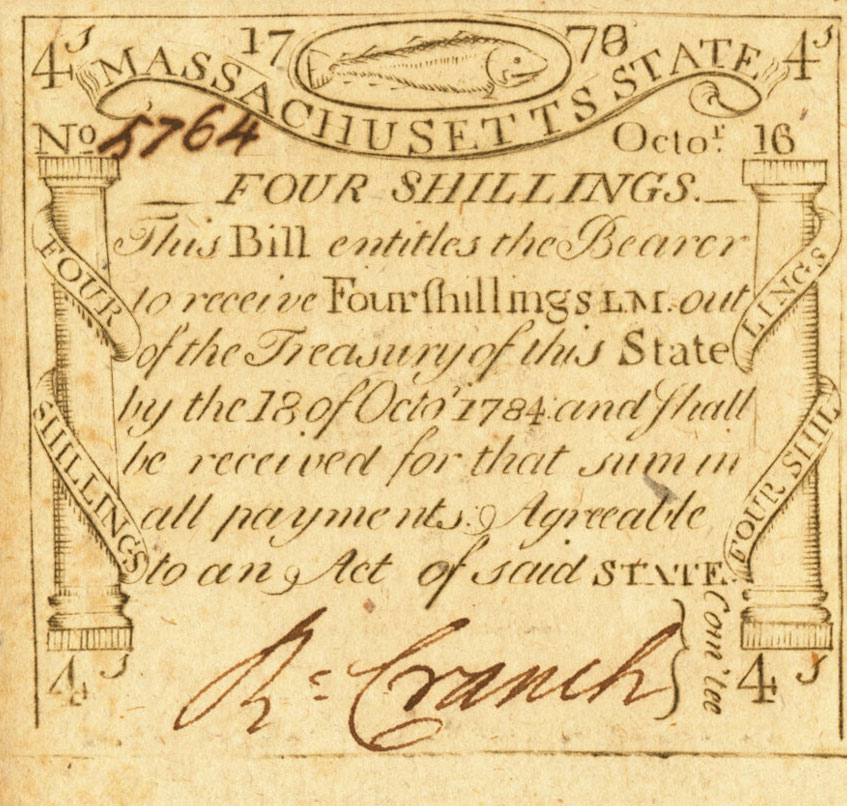 4s 17 78 4s
MASSACHUSETTS STATE
No 5764 Octor. 16
FOUR SHILLINGS.
This Bill entitles the Bearer
to receive Four ſhillings L.M. out
of the Treasury of this State
by the 18 of Octor 1784 and ſhall
be received for that sum in
all payments. Agreeable
to an Act of said STATE.
FOUR
SHILLINGS
FOUR SHIL
LINGS
Rd Cranch } Com'tee
4s 4s